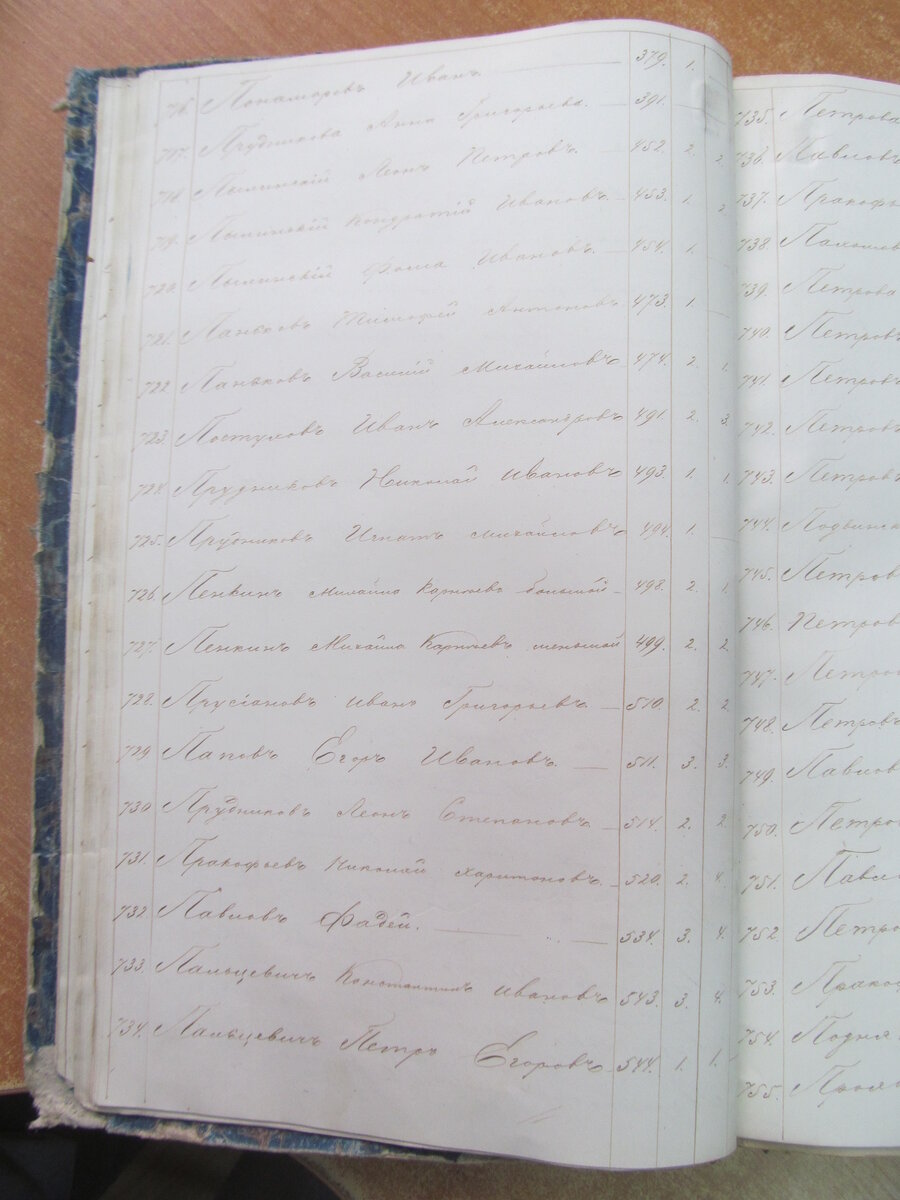 716. Понаморовъ Иванъ 379. 1.
717. Прудникова Анна Григорьева. 391.
718. Пылинскій Леонъ Петровъ. 452. 2. 2.
719. Пылинскій Кондратій Ивановъ. 453. 1. 2.
720. Пылинскій Фома Ивановъ. 454. 1.
721. Паньковъ Тимофей Антоновъ 473. 1
722 Паньковъ Василій Михайловъ 474. 2 1.
723. Постуловъ Иванъ Александровъ 491. 2. 3.
724. Прудниковъ Николай Ивановъ 493. 1. 1.
725. Прудниковъ Игнатъ Михайловъ 494. 1.
726. Пенкинъ Михайло Карнѣевъ большой 498. 2. 1.
727. Пенкинъ Михайла Карнѣевъ меньшой 499. 2. 2.
728. Прусіановъ Иванъ Григорьевъ 510. 2. 2
729 Паповъ Егоръ Ивановъ. 511. 3. 3.
730 Прудниковъ Леонъ Степановъ 514. 2. 2.
731. Пракофьевъ Николай Харитоновъ. 520. 2. 4.
732. Павловъ Фадей. 534. 3. 4.
733. Пальцевичъ Константинъ Ивановъ 543. 3. 4.
734. Пальцевичъ Петръ Егоровъ. 544. 1. 1.
735. Петрова
736. Павловъ
737. Пракофь
738
739. Петрова
740. Петровъ
741. Петровъ
742. Петровъ
743. Петровъ
744. Подвинск
745. Петровъ
746. Петров
747. Петров
748. Петровъ
749. Павлов
750. Петро
751. Павл
752 Петро
753. Прако
754. Подня
755.